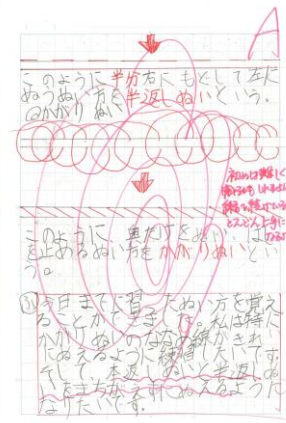 A
このように半分右にもどして左に
ぬうぬい方を半返しぬいという。
④かがりぬい
初めは難しく
このように 
を止めるぬい方をかがりぬいとい
う。
今日までに習ったぬい方を覚え
ることができました。私は特に
かがりぬいのななめ線がきれい
にぬえるように練習したいです。
そして、本返しぬいと半返しぬ
いをまちがえずにぬえるように
なりたいです。